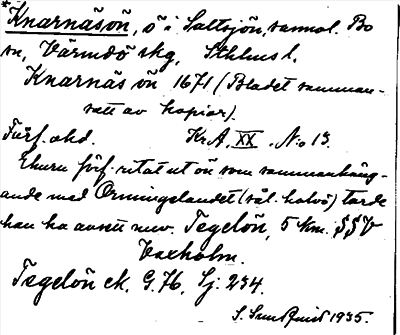 *Knarnäsön, ö i Saltsjön, samml. Bo
sn, Värmdö skg, Sthlms l.
Knarnäs ön 1671 (Bladet samman-
satt av kopior).
Förf. okd. Kr.A. XX. No 13.
Ehuru förf. ritat ut ön som sammanhäng-
ande med Ormingelandet (väl. halvö) torde
han ha avsett nuv. Tegelön, 5 km. SSV
Vaxholm.
Tegelön ek. G. 76, Lj. 234.
1935.